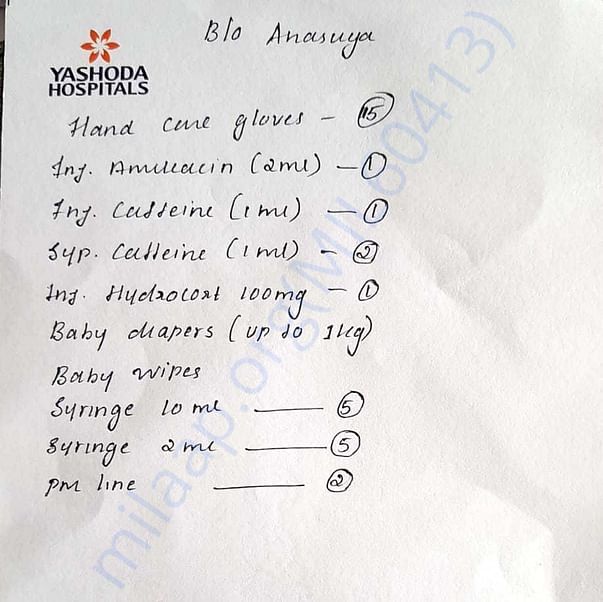 B/o Anasuya
YASHODA
HOSPITALS
Hand care gloves - 15
Inj. Amikacin (2ml) - 1
Inj. Caffeine (1ml) - 1
Syp. Caffeine (1ml) - 2
Inj. Hydrocort 100mg - 1
Baby diapers (up to 1kg)
Baby wipes
Syringe 10 ml — 5
Syringe 2 ml — 5
PM line — 2
milaap.org(MIL600413)